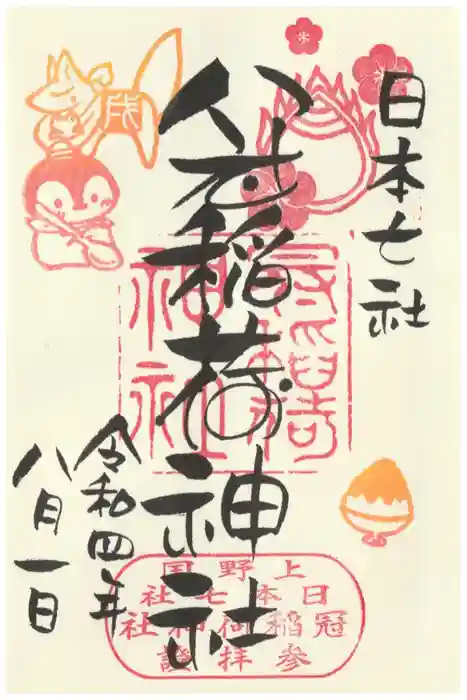 日本七社
冠稲荷神社
令和四年
八月一日
戌
上野国
日本七社
冠稲荷神社
参拝證